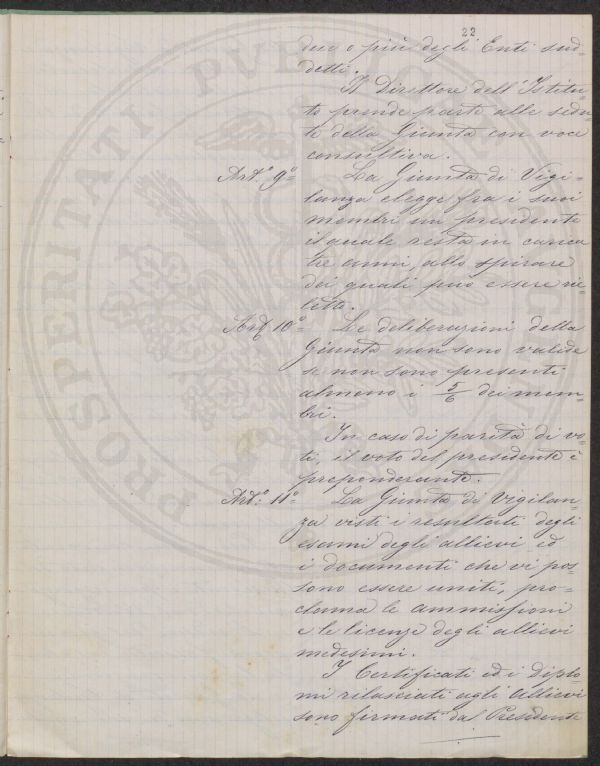 22
due o più degli Enti sud-
detti.
Il Direttore dell'Istitu-
to prende parte alle sedu-
te della Giunta con voce
consultiva.
Art.° 9°= La Giunta di Vigi-
lanza elegge fra i suoi
membri un presidente
il quale resta in carica
tre anni, allo spirare
dei quali può essere rie-
letto.
Art. 10°= Le deliberazioni della
Giunta non sono valide
se non sono presenti
almeno i 5/6 dei mem-
bri.
In caso di parità di vo-
ti, il voto del presidente è
preponderante.
Art.° 11°= La Giunta di Vigilan-
za visti i resultati degli
esami degli allievi ed
i documenti che vi pos-
sono essere uniti, pro-
clama le ammissioni
e le licenze degli allievi
medesimi.
I Certificati ed i diplo-
mi rilasciati agli Allievi
sono firmati dal Presidente
PROSPERITATI PUBLICAE